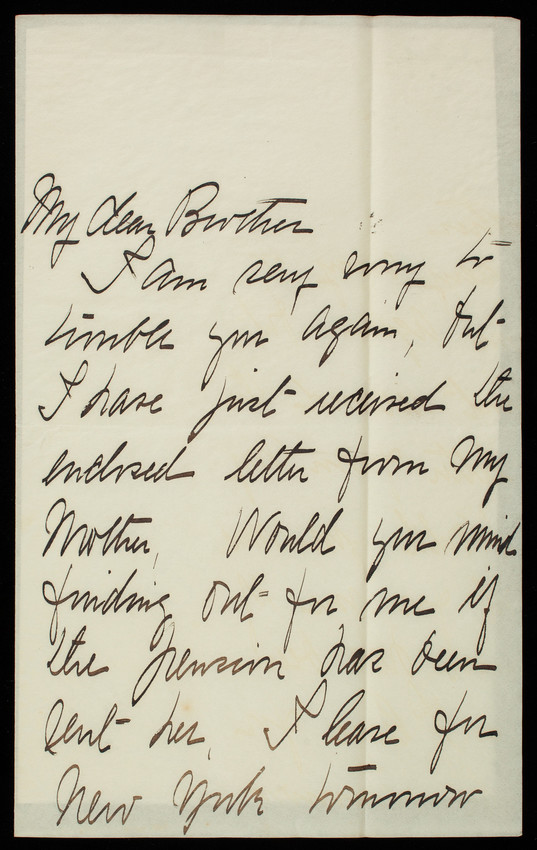 My dear Brother
I am very sorry to
trouble you again, but
I have just received the
enclosed letter from my
Mother, Would you mind
finding out for me if
the pension has been
sent her, I leave for
New York tomorrow